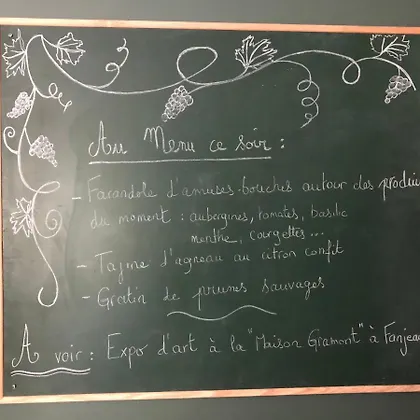 Au Menu ce soir :
- Farandole d'amuses-bouches autour des produi
du moment : aubergines, tomates, basilic
menthe, courgettes...
- Tajine d'agneau au citron confit
- Gratin de prunes sauvages
A voir : Expo d'art à la "Maison Gramont" à Fanjea